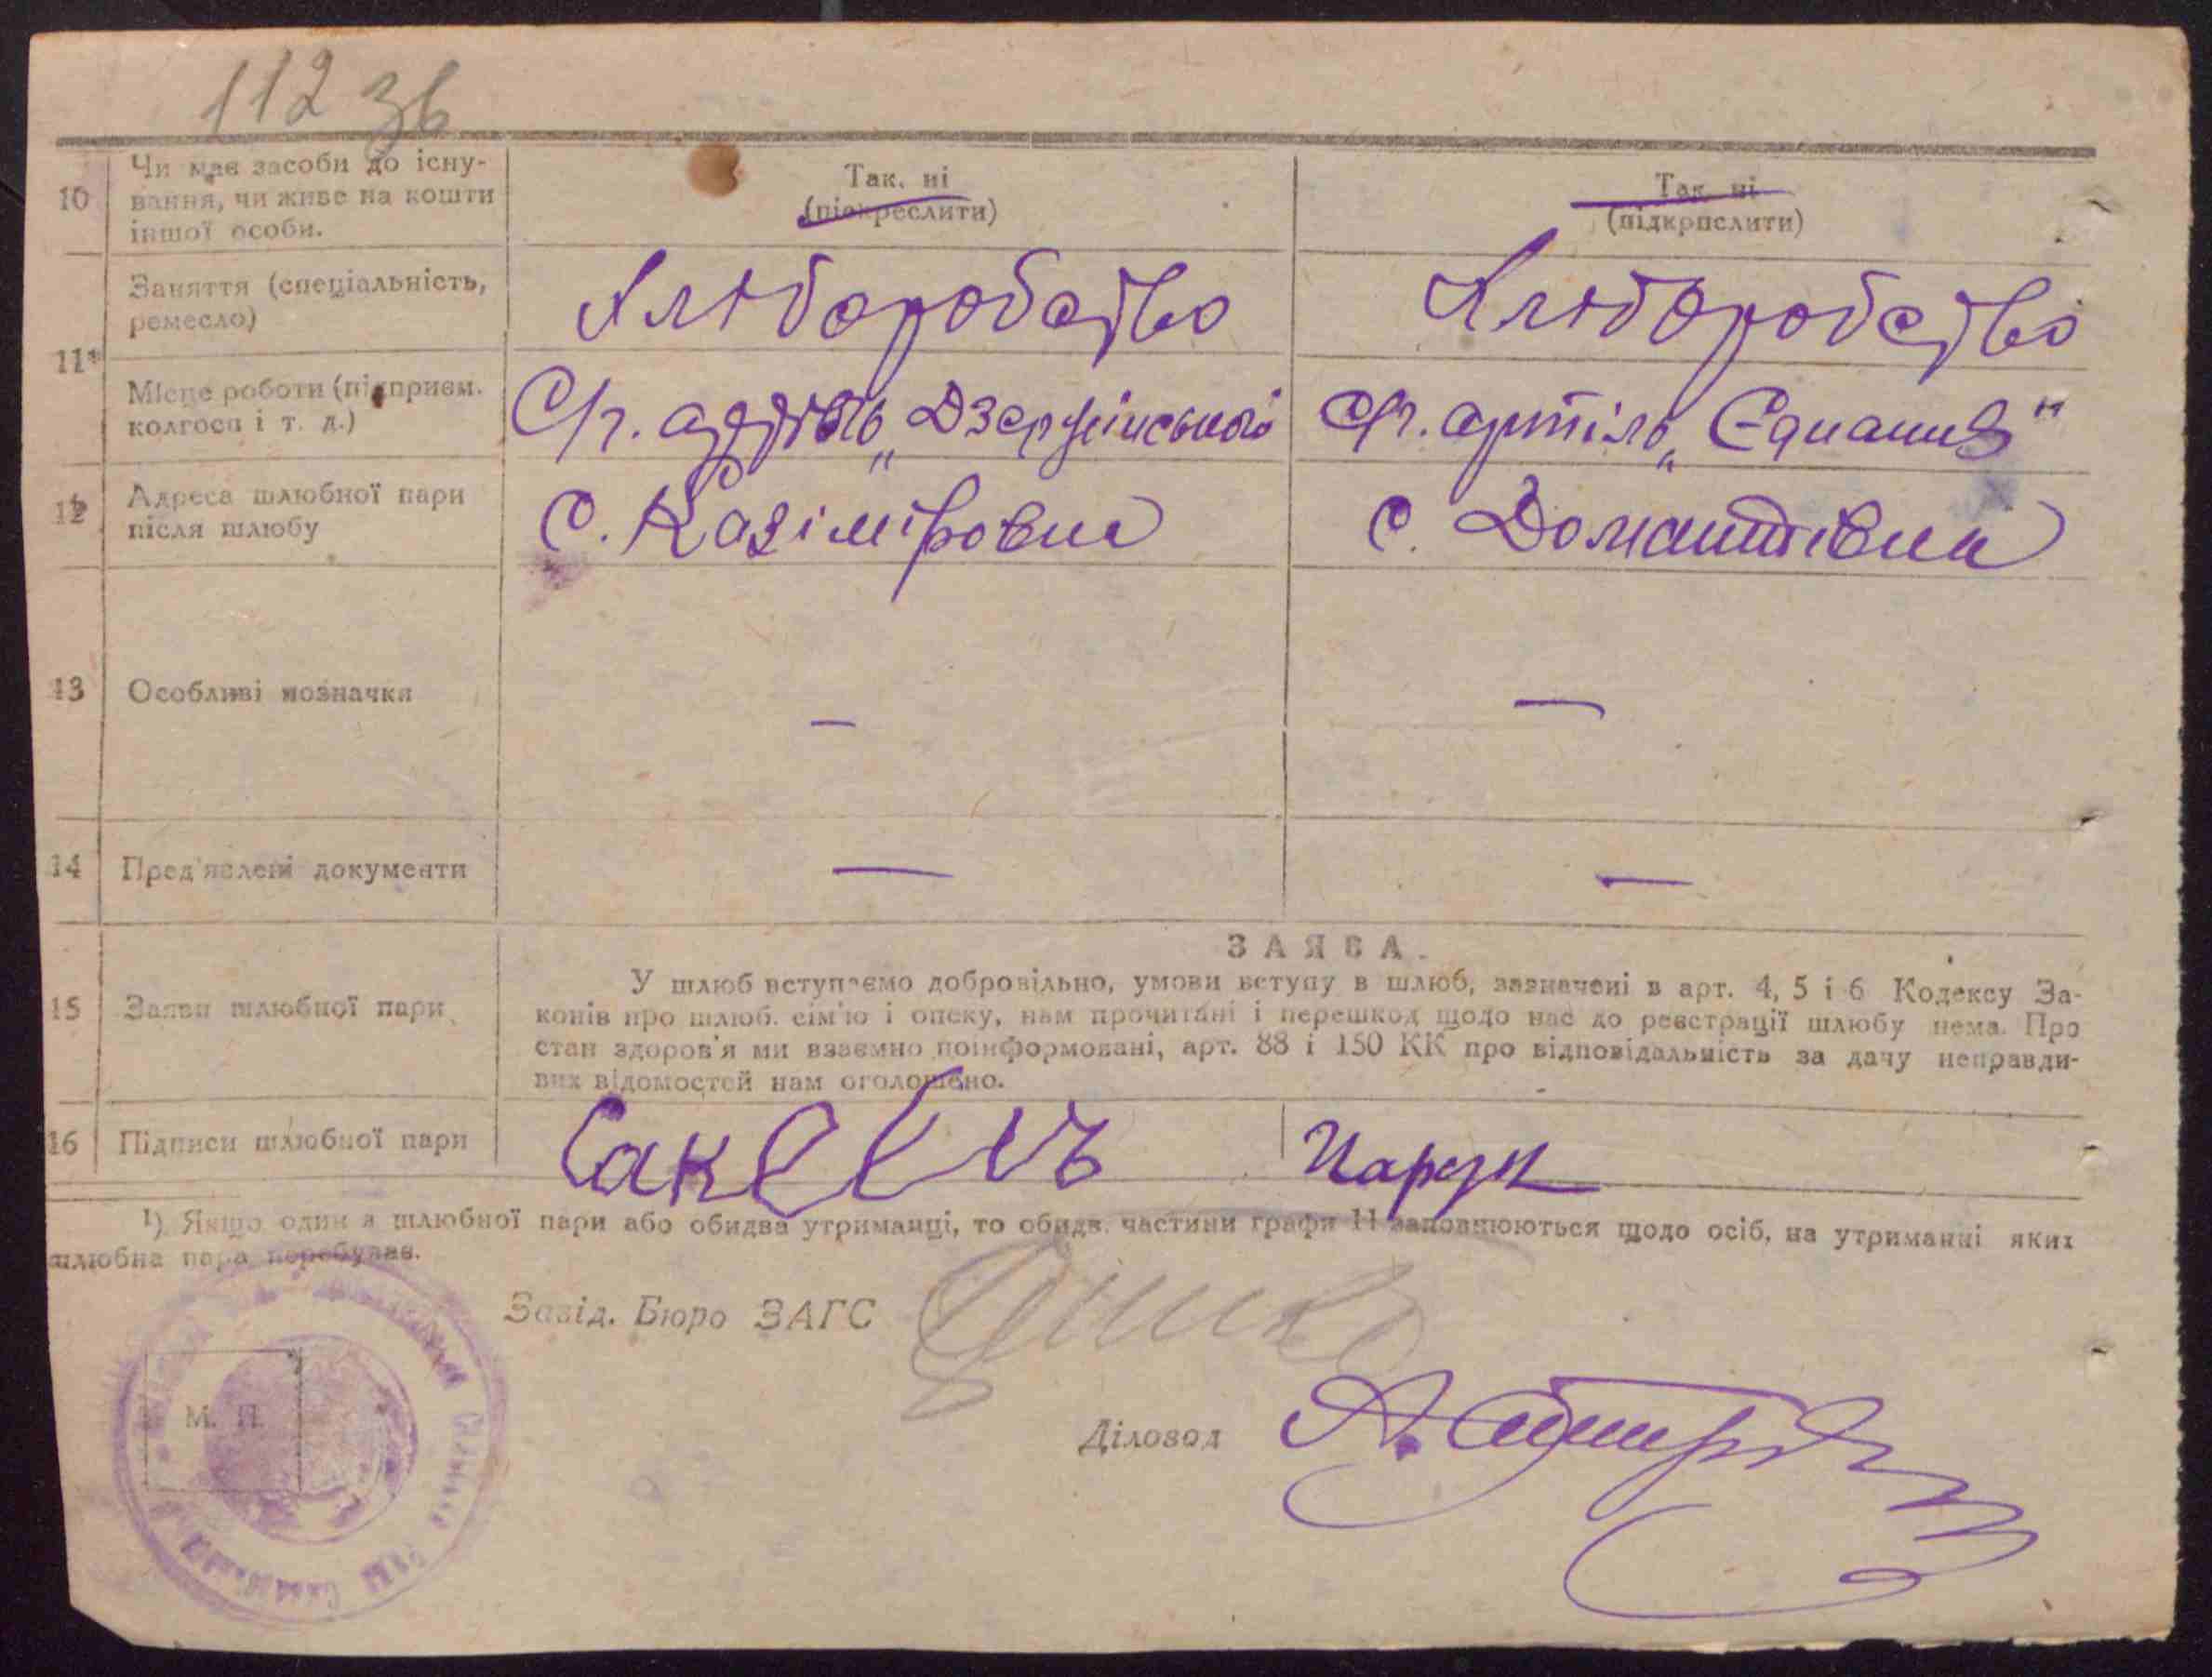 112 зв
10
Чи має засоби до існу-
вання, чи живе на кошти
іншої особи.
Так, ні
(підкреслити)
Так, ні
(підкрпслити)
11¹
Заняття (спеціальність,
ремесло)
Хліборобство
Хліборобство
Місце роботи (підприєм.
колгосп і т. д.)
С/г. артіль „Дзержінського
С/г. артіль „Єднання"
12
Адреса шлюбної пари
після шлюбу
с. Казіміровка
с. Доманівка
13
Особливі позначки
—
—
14
Пред'явлені документи
—
—
15
Заяви шлюбної пари
ЗАЯВА.
У шлюб вступаємо добровільно, умови вступу в шлюб, зазначені в арт. 4, 5 і 6 Кодексу За-
конів про шлюб. сім'ю і опеку, нам прочитані і перешкод щодо нас до реєстрації шлюбу нема. Про
стан здоров'я ми взаємно поінформовані, арт. 88 і 150 КК про відповідальність за дачу неправди-
вих відомостей нам оголошено.
16
Підписи шлюбної пари
¹) Якщо один з шлюбної пари або обидва утриманці, то обидв. частини графи 11 заповнюються щодо осіб, на утриманні яких
шлюбна пара перебуває.
Завід. Бюро ЗАГС
М. П.
Діловод